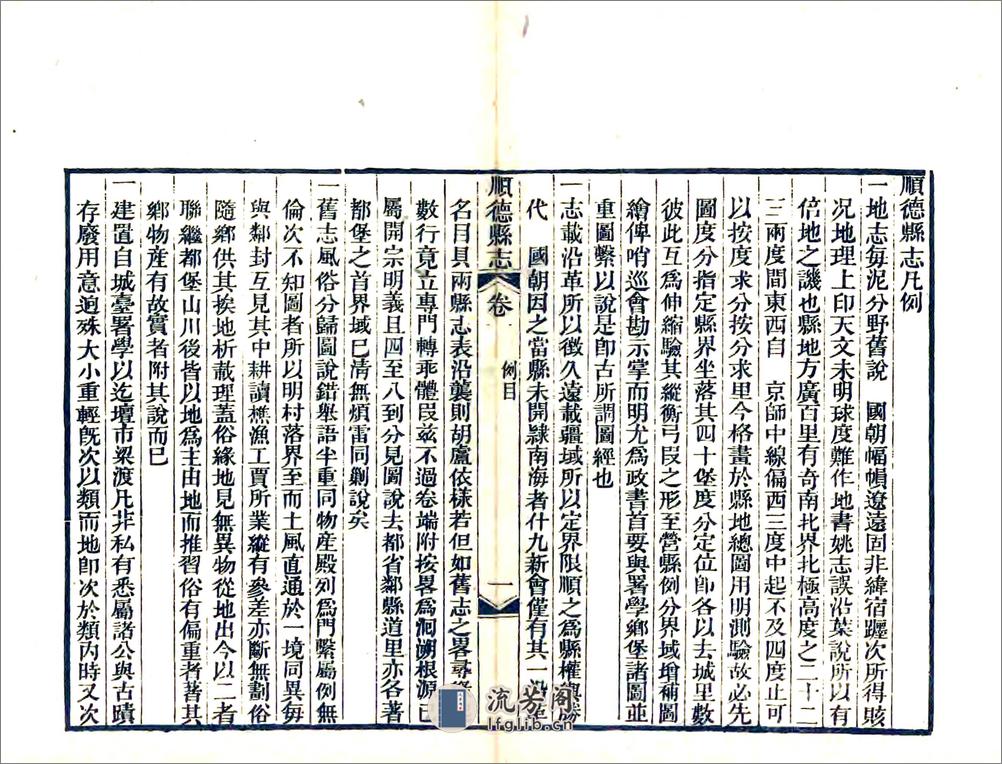 順德縣志凡例
一地志每泥分野舊說　國朝幅幀遼遠固非緯宿躔次所得賅
况地理上印天文未明球度難作地書姚志誤沿葉說所以有
倍地之譏也縣地方廣百里有奇南北界北極高度之二十二
三兩度間東西自　京師中線偏西三度中起不及四度止可
以按度求分按分求里今格畫於縣地總圖用明測驗故必先
圖度分指定縣界坐落其四十堡度分定位卽各以去城里數
彼此互爲伸縮驗其縱衡弓長之形至營縣例分界域增補圖
繪俾哨巡會勘示掌而明尤爲政書首要與署學鄉堡諸圖並
重圖繫以說是卽古所謂圖經也
一志載沿革所以徵久遠載疆域所以定界限順之爲縣權輿勝
代　國朝因之當縣未開隸南海者什九新會僅有其一
順德縣志
卷
例目
一
名目具兩縣志表沿襲則胡盧依樣若但如舊志之畧尋
數行竟立專門轉乖體段茲不過卷端附按畧爲洄溯根源已
屬開宗明義且四至八到分見圖說去都省鄰縣道里亦各著
都堡之首界域已清無煩雷同剿說矣
一舊志風俗分歸圖說錯舉語半重同物産殿列爲門繫屬例無
倫次不知圖者所以明村落界至而土風直通於一境同異每
與鄰封互見其中耕讀樵漁工賈所業縱有參差亦斷無劃俗
隨鄉供其挨地析載理蓋俗緣地見無異物從地出今以二者
聯繼都堡山川後皆以地爲主由地而推習俗有偏重者著其
鄉物産有故實者附其說而已
一建置自城臺署學以迄壇市梁渡凡非私有悉屬諸公與古蹟
存廢用意逈殊大小重輕旣次以類而地卽次於類內時又次
流芳阁
lfglib.cn